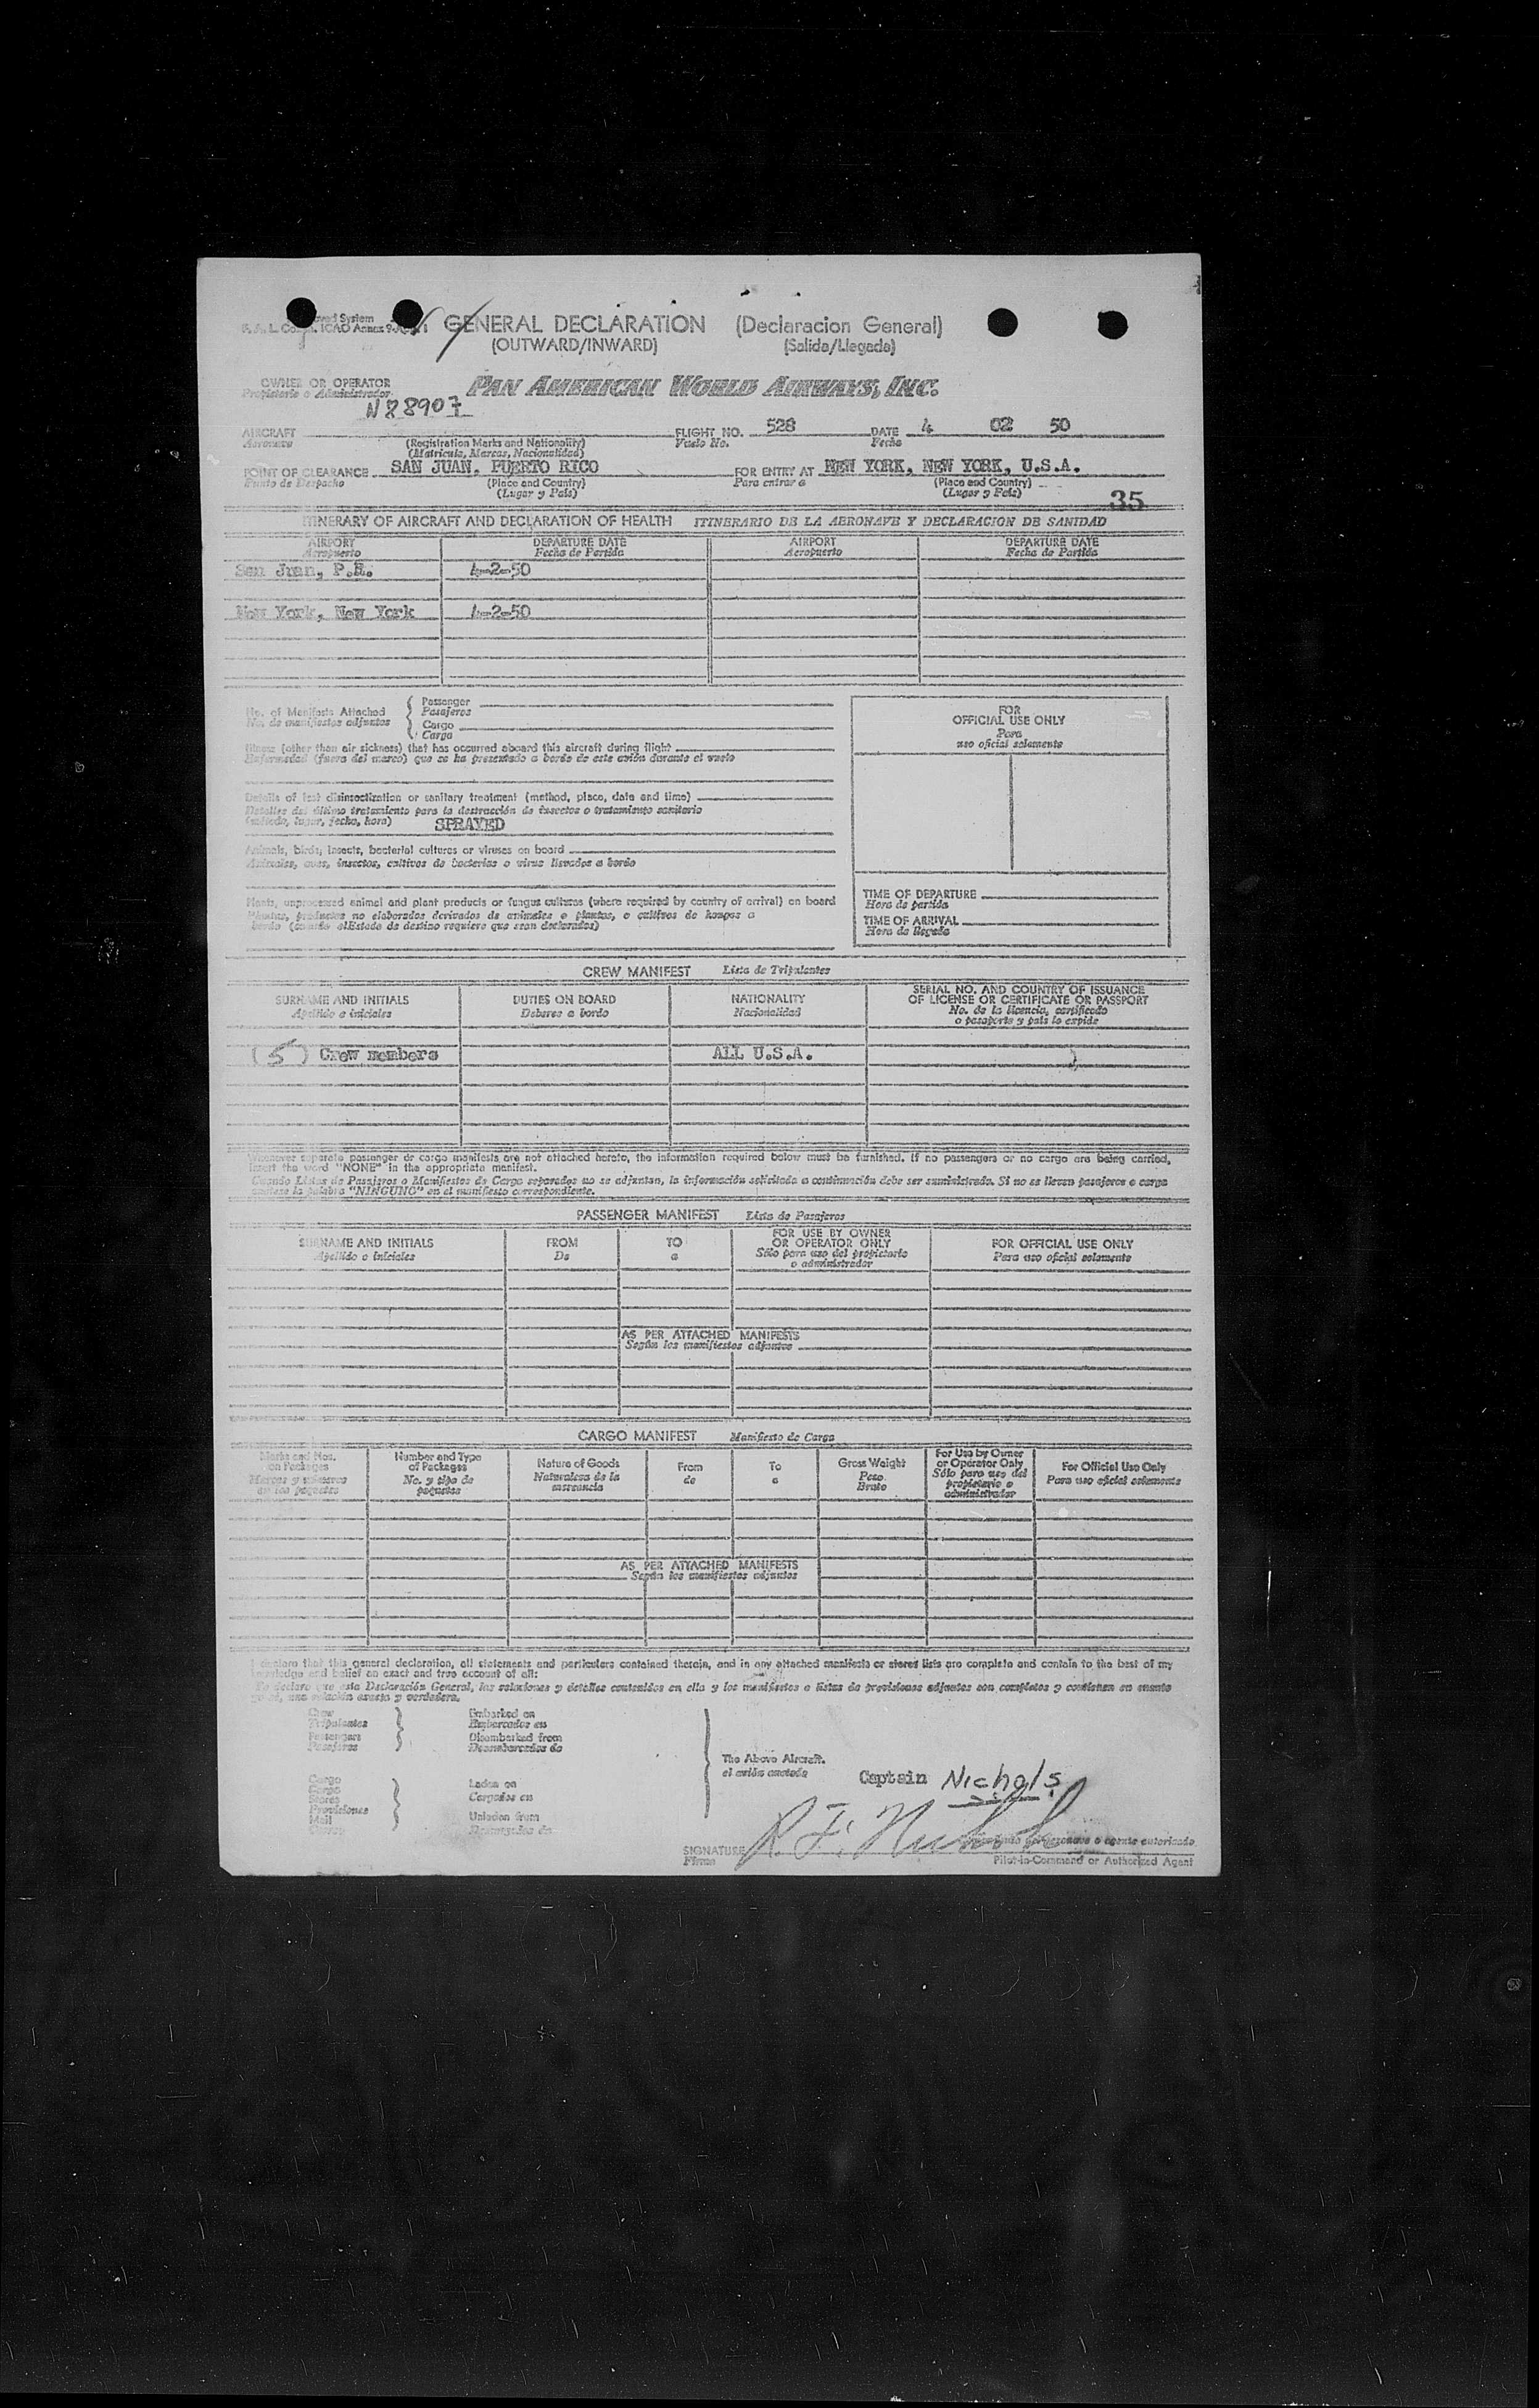 GENERAL DECLARATION (Declaracion General)
(OUTWARD/INWARD) (Salida/Llegada)
ICAO Annex 9
OWNER OR OPERATOR PAN AMERICAN WORLD AIRWAYS, INC.
Propietario o Administrador
N88907
AIRCRAFT FLIGHT NO. 528 DATE 4 02 50
Aeronave (Registration Marks and Nationality) Vuelo No. Fecha
(Matricula, Marcas, Nacionalidad)
POINT OF CLEARANCE SAN JUAN, PUERTO RICO FOR ENTRY AT NEW YORK, NEW YORK, U.S.A.
Punto de Despacho (Place and Country) Para entrar a (Place and Country)
(Lugar y País) (Lugar y País)
35
ITINERARY OF AIRCRAFT AND DECLARATION OF HEALTH ITINERARIO DE LA AERONAVE Y DECLARACION DE SANIDAD
AIRPORT DEPARTURE DATE AIRPORT DEPARTURE DATE
Aeropuerto Fecha de Partida Aeropuerto Fecha de Partida
San Juan, P.R. 4-2-50
New York, New York 4-2-50
No. of Manifests Attached Passenger
No. de manifiestos adjuntos Pasajeros
Cargo
Carga
FOR
OFFICIAL USE ONLY
Para
uso oficial solamente
Illness (other than air sickness) that has occurred aboard this aircraft during flight
Enfermedad (fuera del mareo) que se ha presentado a bordo de este avión durante el vuelo
Details of last disinsectization or sanitary treatment (method, place, date and time)
Detalles del último tratamiento para la destrucción de insectos o tratamiento sanitario
(método, lugar, fecha, hora) SPRAYED
Animals, birds, insects, bacterial cultures or viruses on board
Animales, aves, insectos, cultivos de bacterias o virus llevados a bordo
Plants, unprocessed animal and plant products or fungus cultures (where required by country of arrival) on board
Plantas, productos no elaborados derivados de animales o plantas, o cultivos de hongos a
bordo (cuando el Estado de destino requiere que sean declarados)
TIME OF DEPARTURE
Hora de partida
TIME OF ARRIVAL
Hora de llegada
CREW MANIFEST Lista de Tripulantes
SURNAME AND INITIALS DUTIES ON BOARD NATIONALITY SERIAL NO. AND COUNTRY OF ISSUANCE
OF LICENSE OR CERTIFICATE OR PASSPORT
Apellido e iniciales Deberes a bordo Nacionalidad No. de la licencia, certificado
o pasaporte y país lo expide
(5) Crew members ALL U.S.A.
Whenever separate passenger or cargo manifests are not attached hereto, the information required below must be furnished. If no passengers or no cargo are being carried,
insert the word "NONE" in the appropriate manifest.
Cuando Listas de Pasajeros o Manifiestos de Carga separados no se adjuntan, la información solicitada a continuación debe ser suministrada. Si no se llevan pasajeros o carga
anótese la palabra "NINGUNO" en el manifiesto correspondiente.
PASSENGER MANIFEST Lista de Pasajeros
SURNAME AND INITIALS FROM TO FOR USE BY OWNER
OR OPERATOR ONLY FOR OFFICIAL USE ONLY
Apellido e iniciales De a Sólo para uso del propietario
o administrador Para uso oficial solamente
AS PER ATTACHED MANIFESTS
Según los manifiestos adjuntos
CARGO MANIFEST Manifiesto de Carga
Marks and Nos.
on Packages
Marcas y números
en los paquetes
Number and Type
of Packages
No. y tipo de
paquetes
Nature of Goods
Naturaleza de la
mercancía
From
de
To
a
Gross Weight
Peso
Bruto
For Use by Owner
or Operator Only
Sólo para uso del
propietario o
administrador
For Official Use Only
Para uso oficial solamente
AS PER ATTACHED MANIFESTS
Según los manifiestos adjuntos
I declare that this general declaration, all statements and particulars contained therein, and in any attached manifests or stores lists are complete and contain to the best of my
knowledge and belief an exact and true account of all:
Yo declaro que esta Declaración General, las relaciones y detalles contenidos en ella y los manifiestos o listas de provisiones adjuntos son completos y contienen en cuanto
yo sé, una relación exacta y verdadera.
Crew
Tripulantes
Passengers
Pasajeros
Embarked on
Embarcados en
Disembarked from
Desembarcados de
Cargo
Carga
Stores
Provisiones
Mail
Correo
Laden on
Cargados en
Unladen from
The Above Aircraft.
el avión anotado
Captain Nichols
R. F. Nichols
SIGNATURE
Firma
o agente autorizado
Pilot-in-Command or Authorized Agent